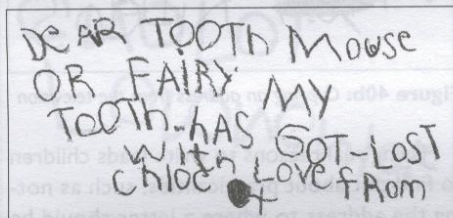 DEAR TOOTH MOUSE
OR FAIRY
TOOTH HAS MY
GOT LOST
With Love FROM
chloe